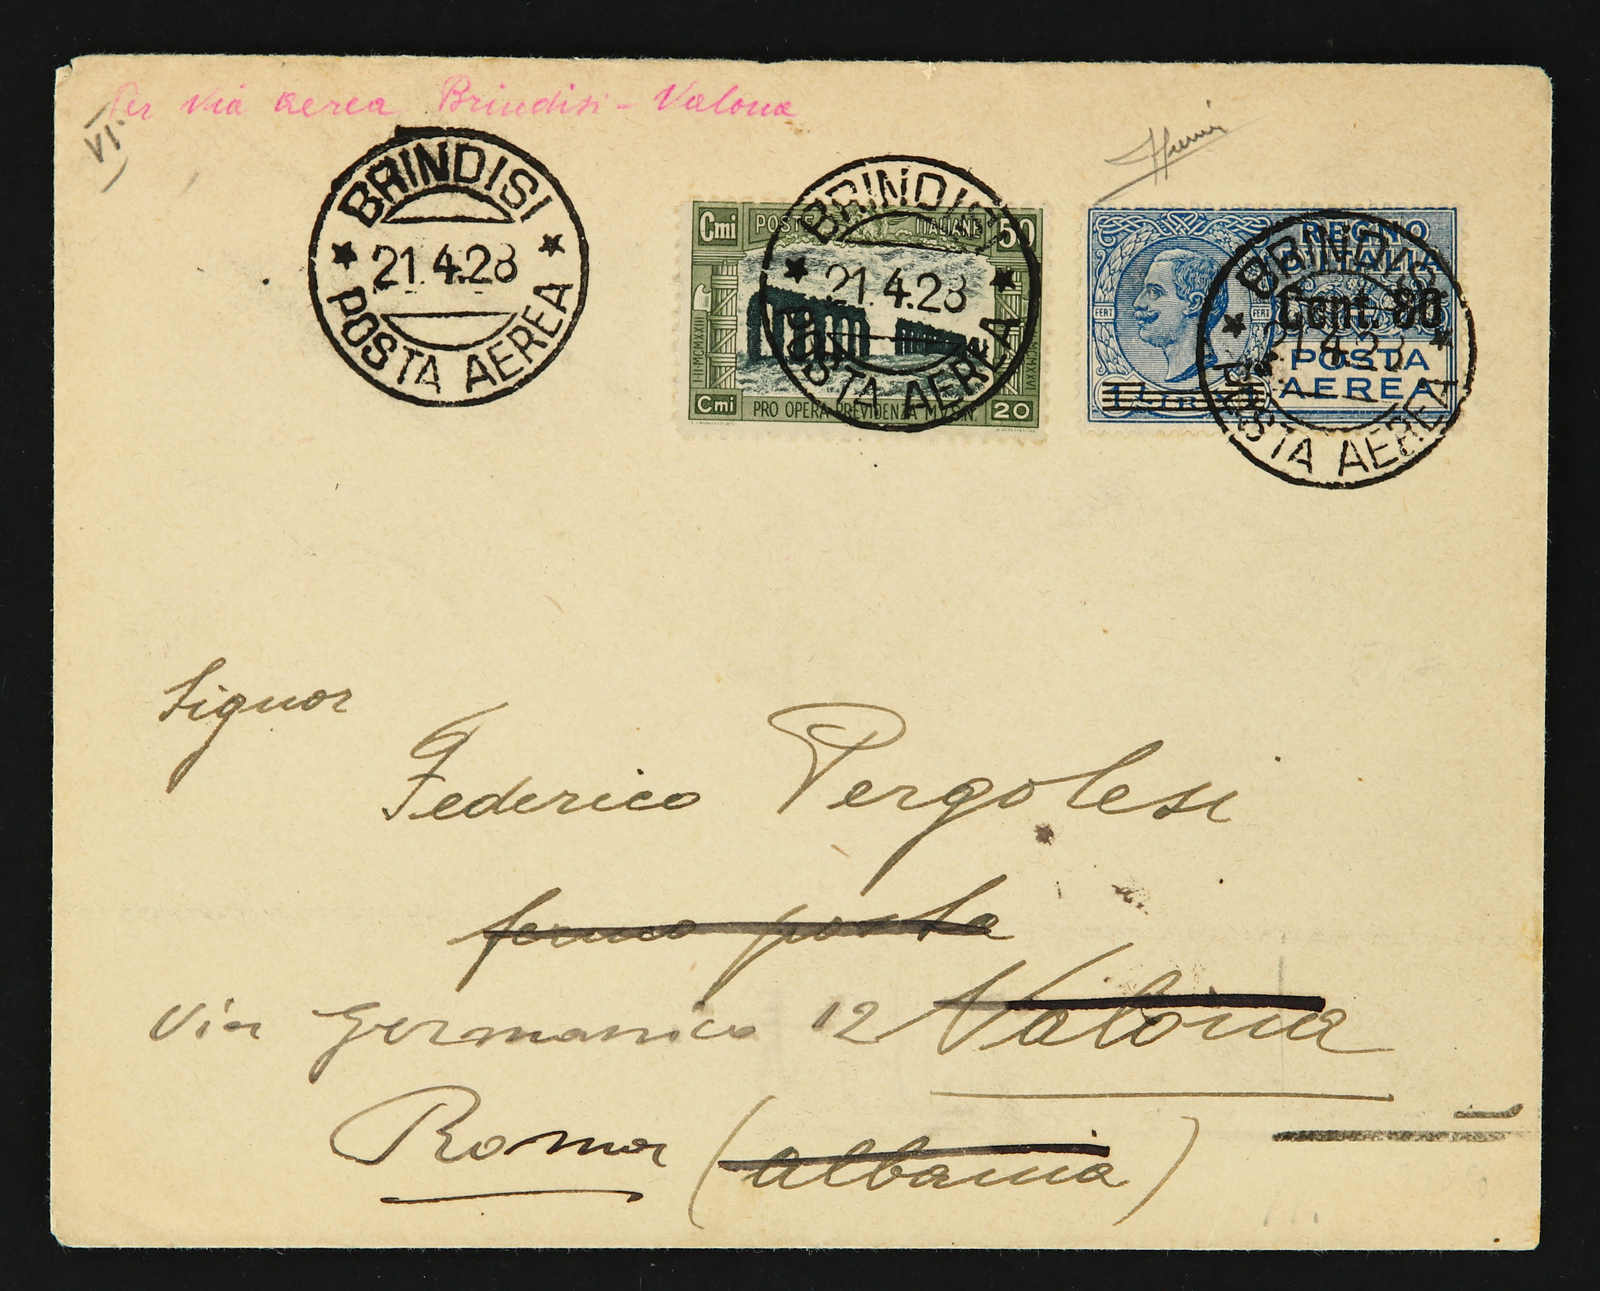 Per via aerea Brindisi - Valona
VI.
BRINDISI
21.4.28
POSTA AEREA
Cmi POSTE ITALIANE 50
Cmi PRO OPERA PREVIDENZA M.V.S.N. 20
BRINDISI
21.4.28
POSTA AEREA
REGNO
D'ITALIA
FERT FERT
Cent. 80
POSTA
AEREA
1 LIRA
BRINDISI
21.4.28
POSTA AEREA
Signor
Federico Pergolesi
fermo posta
Via Germanico 12 Valona
Roma (Albania)